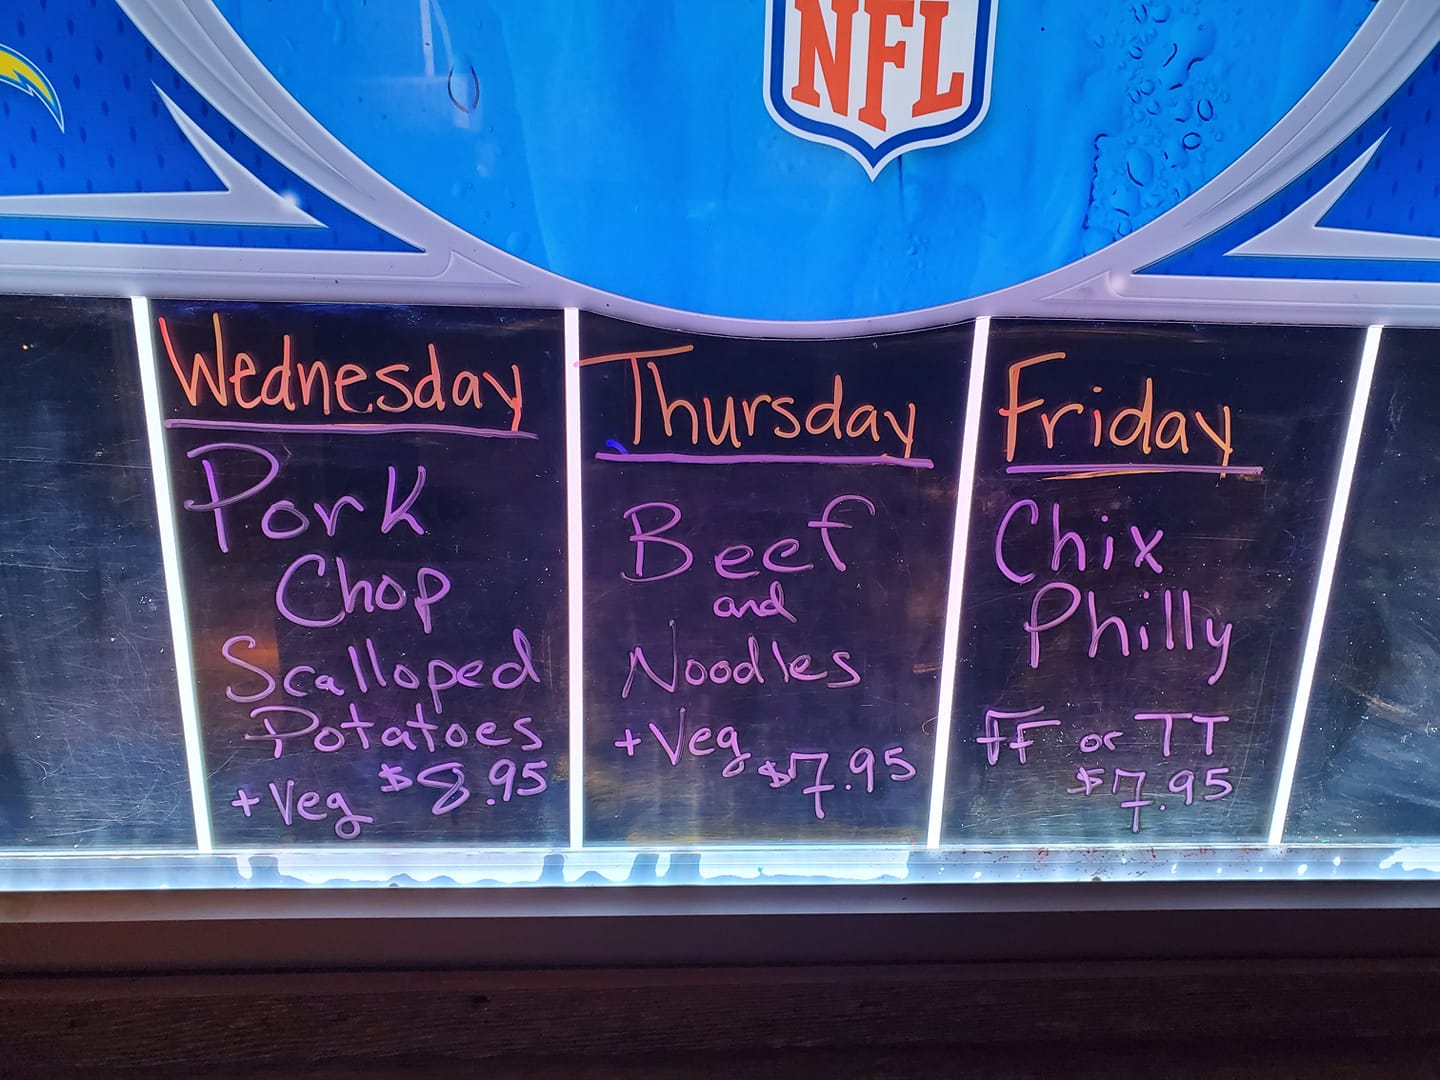 NFL
Wednesday
Pork
Chop
Scalloped
Potatoes
+ Veg $8.95
Thursday
Beef
and
Noodles
+ Veg $7.95
Friday
Chix
Philly
FF or TT
$7.95